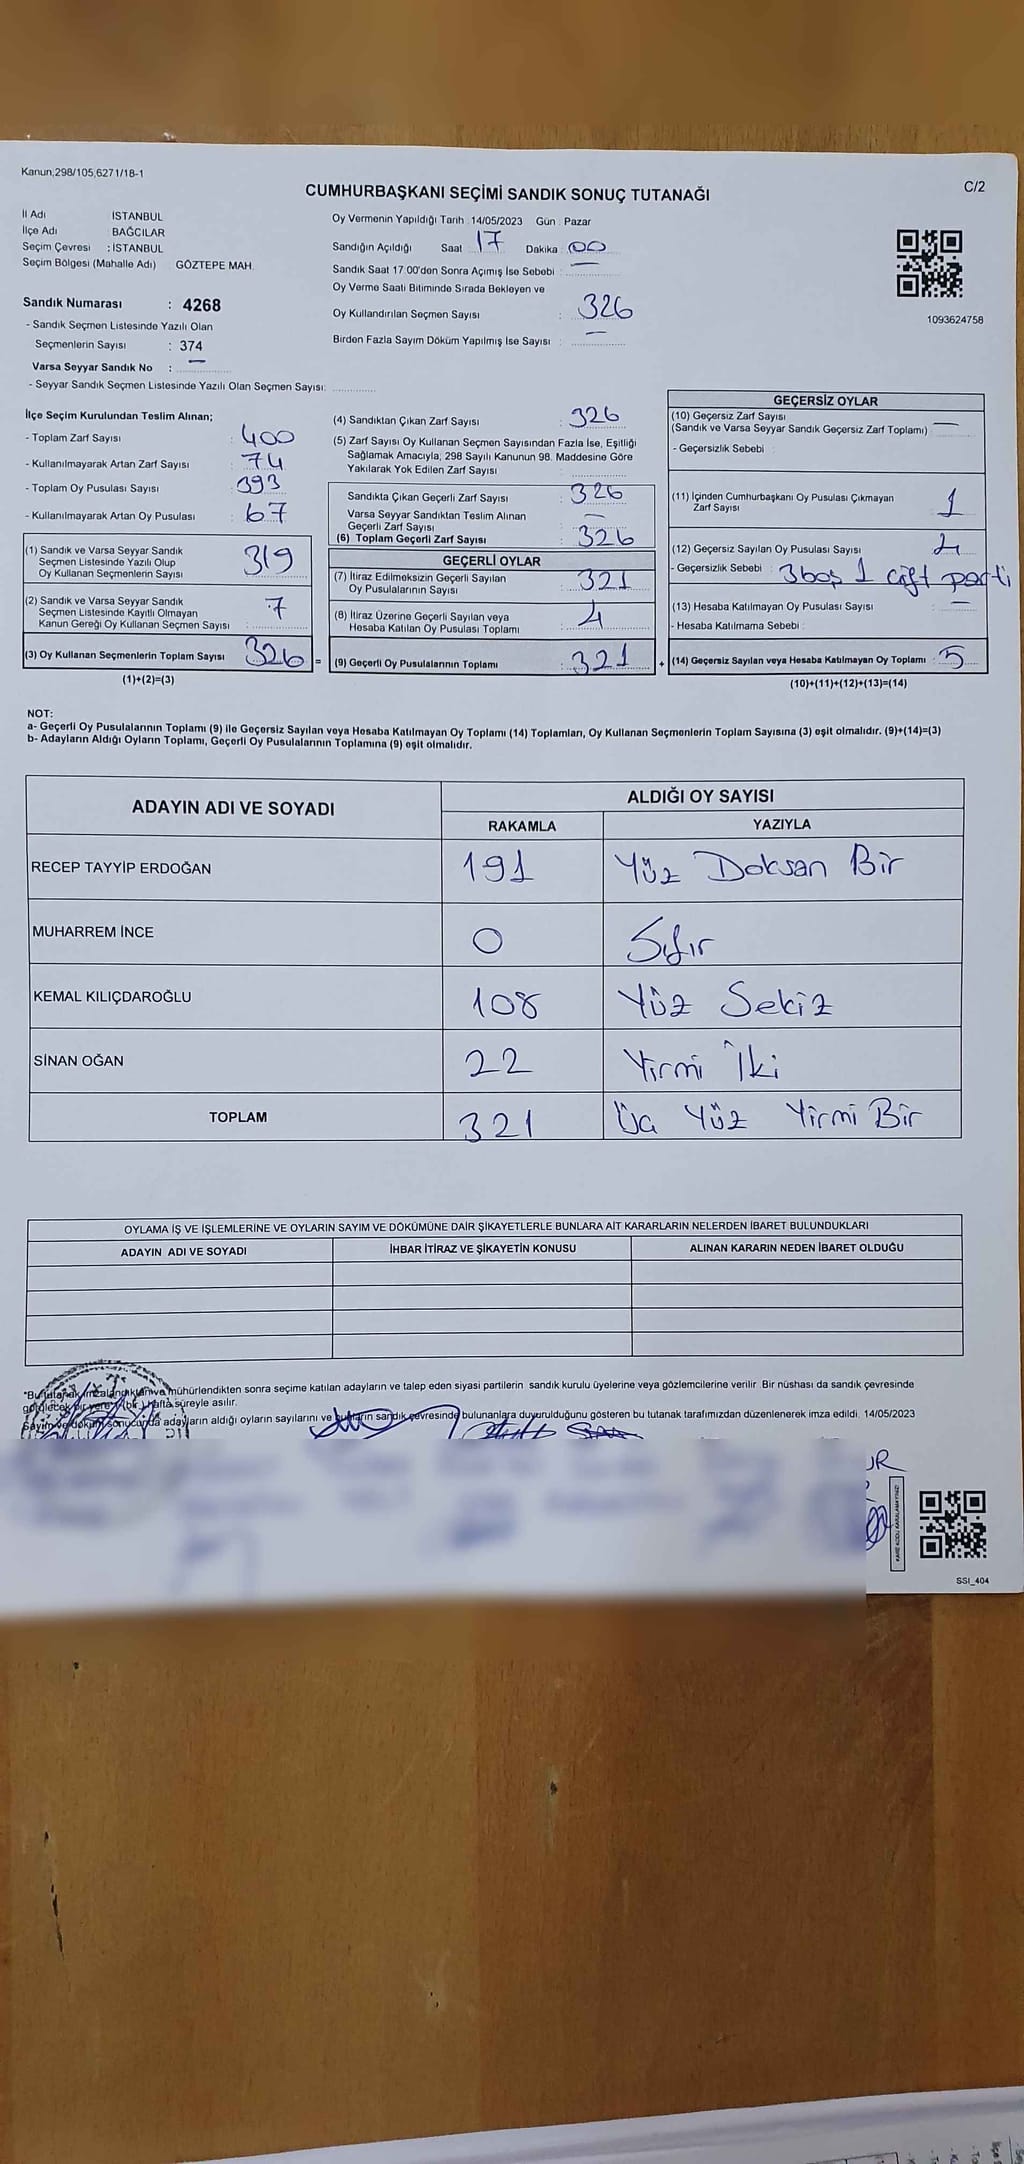 Kanun,298/105,6271/18-1
CUMHURBAŞKANI SEÇİMİ SANDIK SONUÇ TUTANAĞI
C/2
İl Adı İSTANBUL
İlçe Adı BAĞCILAR
Seçim Çevresi : İSTANBUL
Seçim Bölgesi (Mahalle Adı) GÖZTEPE MAH.
Sandık Numarası : 4268
- Sandık Seçmen Listesinde Yazılı Olan
Seçmenlerin Sayısı : 374
Varsa Seyyar Sandık No : —
- Seyyar Sandık Seçmen Listesinde Yazılı Olan Seçmen Sayısı:
Oy Vermenin Yapıldığı Tarih 14/05/2023 Gün Pazar
Sandığın Açıldığı Saat 17 Dakika : 00
Sandık Saat 17:00'den Sonra Açımış İse Sebebi : —
Oy Verme Saati Bitiminde Sırada Bekleyen ve
Oy Kullandırılan Seçmen Sayısı : 326
Birden Fazla Sayım Döküm Yapılmış İse Sayısı : —
1093624758
İlçe Seçim Kurulundan Teslim Alınan;
- Toplam Zarf Sayısı : 400
- Kullanılmayarak Artan Zarf Sayısı : 74
- Toplam Oy Pusulası Sayısı : 393
- Kullanılmayarak Artan Oy Pusulası : 67
(1) Sandık ve Varsa Seyyar Sandık
Seçmen Listesinde Yazılı Olup
Oy Kullanan Seçmenlerin Sayısı 319
(2) Sandık ve Varsa Seyyar Sandık
Seçmen Listesinde Kayıtlı Olmayan
Kanun Gereği Oy Kullanan Seçmen Sayısı : 7
(3) Oy Kullanan Seçmenlerin Toplam Sayısı 326 =
(1)+(2)=(3)
(4) Sandıktan Çıkan Zarf Sayısı : 326
(5) Zarf Sayısı Oy Kullanan Seçmen Sayısından Fazla İse, Eşitliği
Sağlamak Amacıyla, 298 Sayılı Kanunun 98. Maddesine Göre
Yakılarak Yok Edilen Zarf Sayısı :
Sandıkta Çıkan Geçerli Zarf Sayısı : 326
Varsa Seyyar Sandıktan Teslim Alınan
Geçerli Zarf Sayısı : —
(6) Toplam Geçerli Zarf Sayısı : 326
GEÇERLİ OYLAR
(7) İtiraz Edilmeksizin Geçerli Sayılan
Oy Pusulalarının Sayısı : 321
(8) İtiraz Üzerine Geçerli Sayılan veya
Hesaba Katılan Oy Pusulası Toplamı : 4
(9) Geçerli Oy Pusulalarının Toplamı : 321 +
GEÇERSİZ OYLAR
(10) Geçersiz Zarf Sayısı
(Sandık ve Varsa Seyyar Sandık Geçersiz Zarf Toplamı) : —
- Geçersizlik Sebebi :
(11) İçinden Cumhurbaşkanı Oy Pusulası Çıkmayan
Zarf Sayısı 1
(12) Geçersiz Sayılan Oy Pusulası Sayısı 4
- Geçersizlik Sebebi : 3 boş 1 çift parti
(13) Hesaba Katılmayan Oy Pusulası Sayısı : —
- Hesaba Katılmama Sebebi :
(14) Geçersiz Sayılan veya Hesaba Katılmayan Oy Toplamı : 5
(10)+(11)+(12)+(13)=(14)
NOT:
a- Geçerli Oy Pusulalarının Toplamı (9) ile Geçersiz Sayılan veya Hesaba Katılmayan Oy Toplamı (14) Toplamları, Oy Kullanan Seçmenlerin Toplam Sayısına (3) eşit olmalıdır. (9)+(14)=(3)
b- Adayların Aldığı Oyların Toplamı, Geçerli Oy Pusulalarının Toplamına (9) eşit olmalıdır.
ADAYIN ADI VE SOYADI
ALDIĞI OY SAYISI
RAKAMLA YAZIYLA
RECEP TAYYİP ERDOĞAN 191 Yüz Doksan Bir
MUHARREM İNCE 0 Sıfır
KEMAL KILIÇDAROĞLU 108 Yüz Sekiz
SİNAN OĞAN 22 Yirmi İki
TOPLAM 321 Üç Yüz Yirmi Bir
OYLAMA İŞ VE İŞLEMLERİNE VE OYLARIN SAYIM VE DÖKÜMÜNE DAİR ŞİKAYETLERLE BUNLARA AİT KARARLARIN NELERDEN İBARET BULUNDUKLARI
ADAYIN ADI VE SOYADI İHBAR İTİRAZ VE ŞİKAYETİN KONUSU ALINAN KARARIN NEDEN İBARET OLDUĞU
*Bu tutanak imzalandıktan ve mühürlendikten sonra seçime katılan adayların ve talep eden siyasi partilerin sandık kurulu üyelerine veya gözlemcilerine verilir. Bir nüshası da sandık çevresinde
görülecek bir yere 1 (bir) hafta süreyle asılır.
Sayım ve döküm sonucunda adayların aldığı oyların sayılarını ve bunların sandık çevresinde bulunanlara duyurulduğunu gösteren bu tutanak tarafımızdan düzenlenerek imza edildi. 14/05/2023
UR
SSI_404